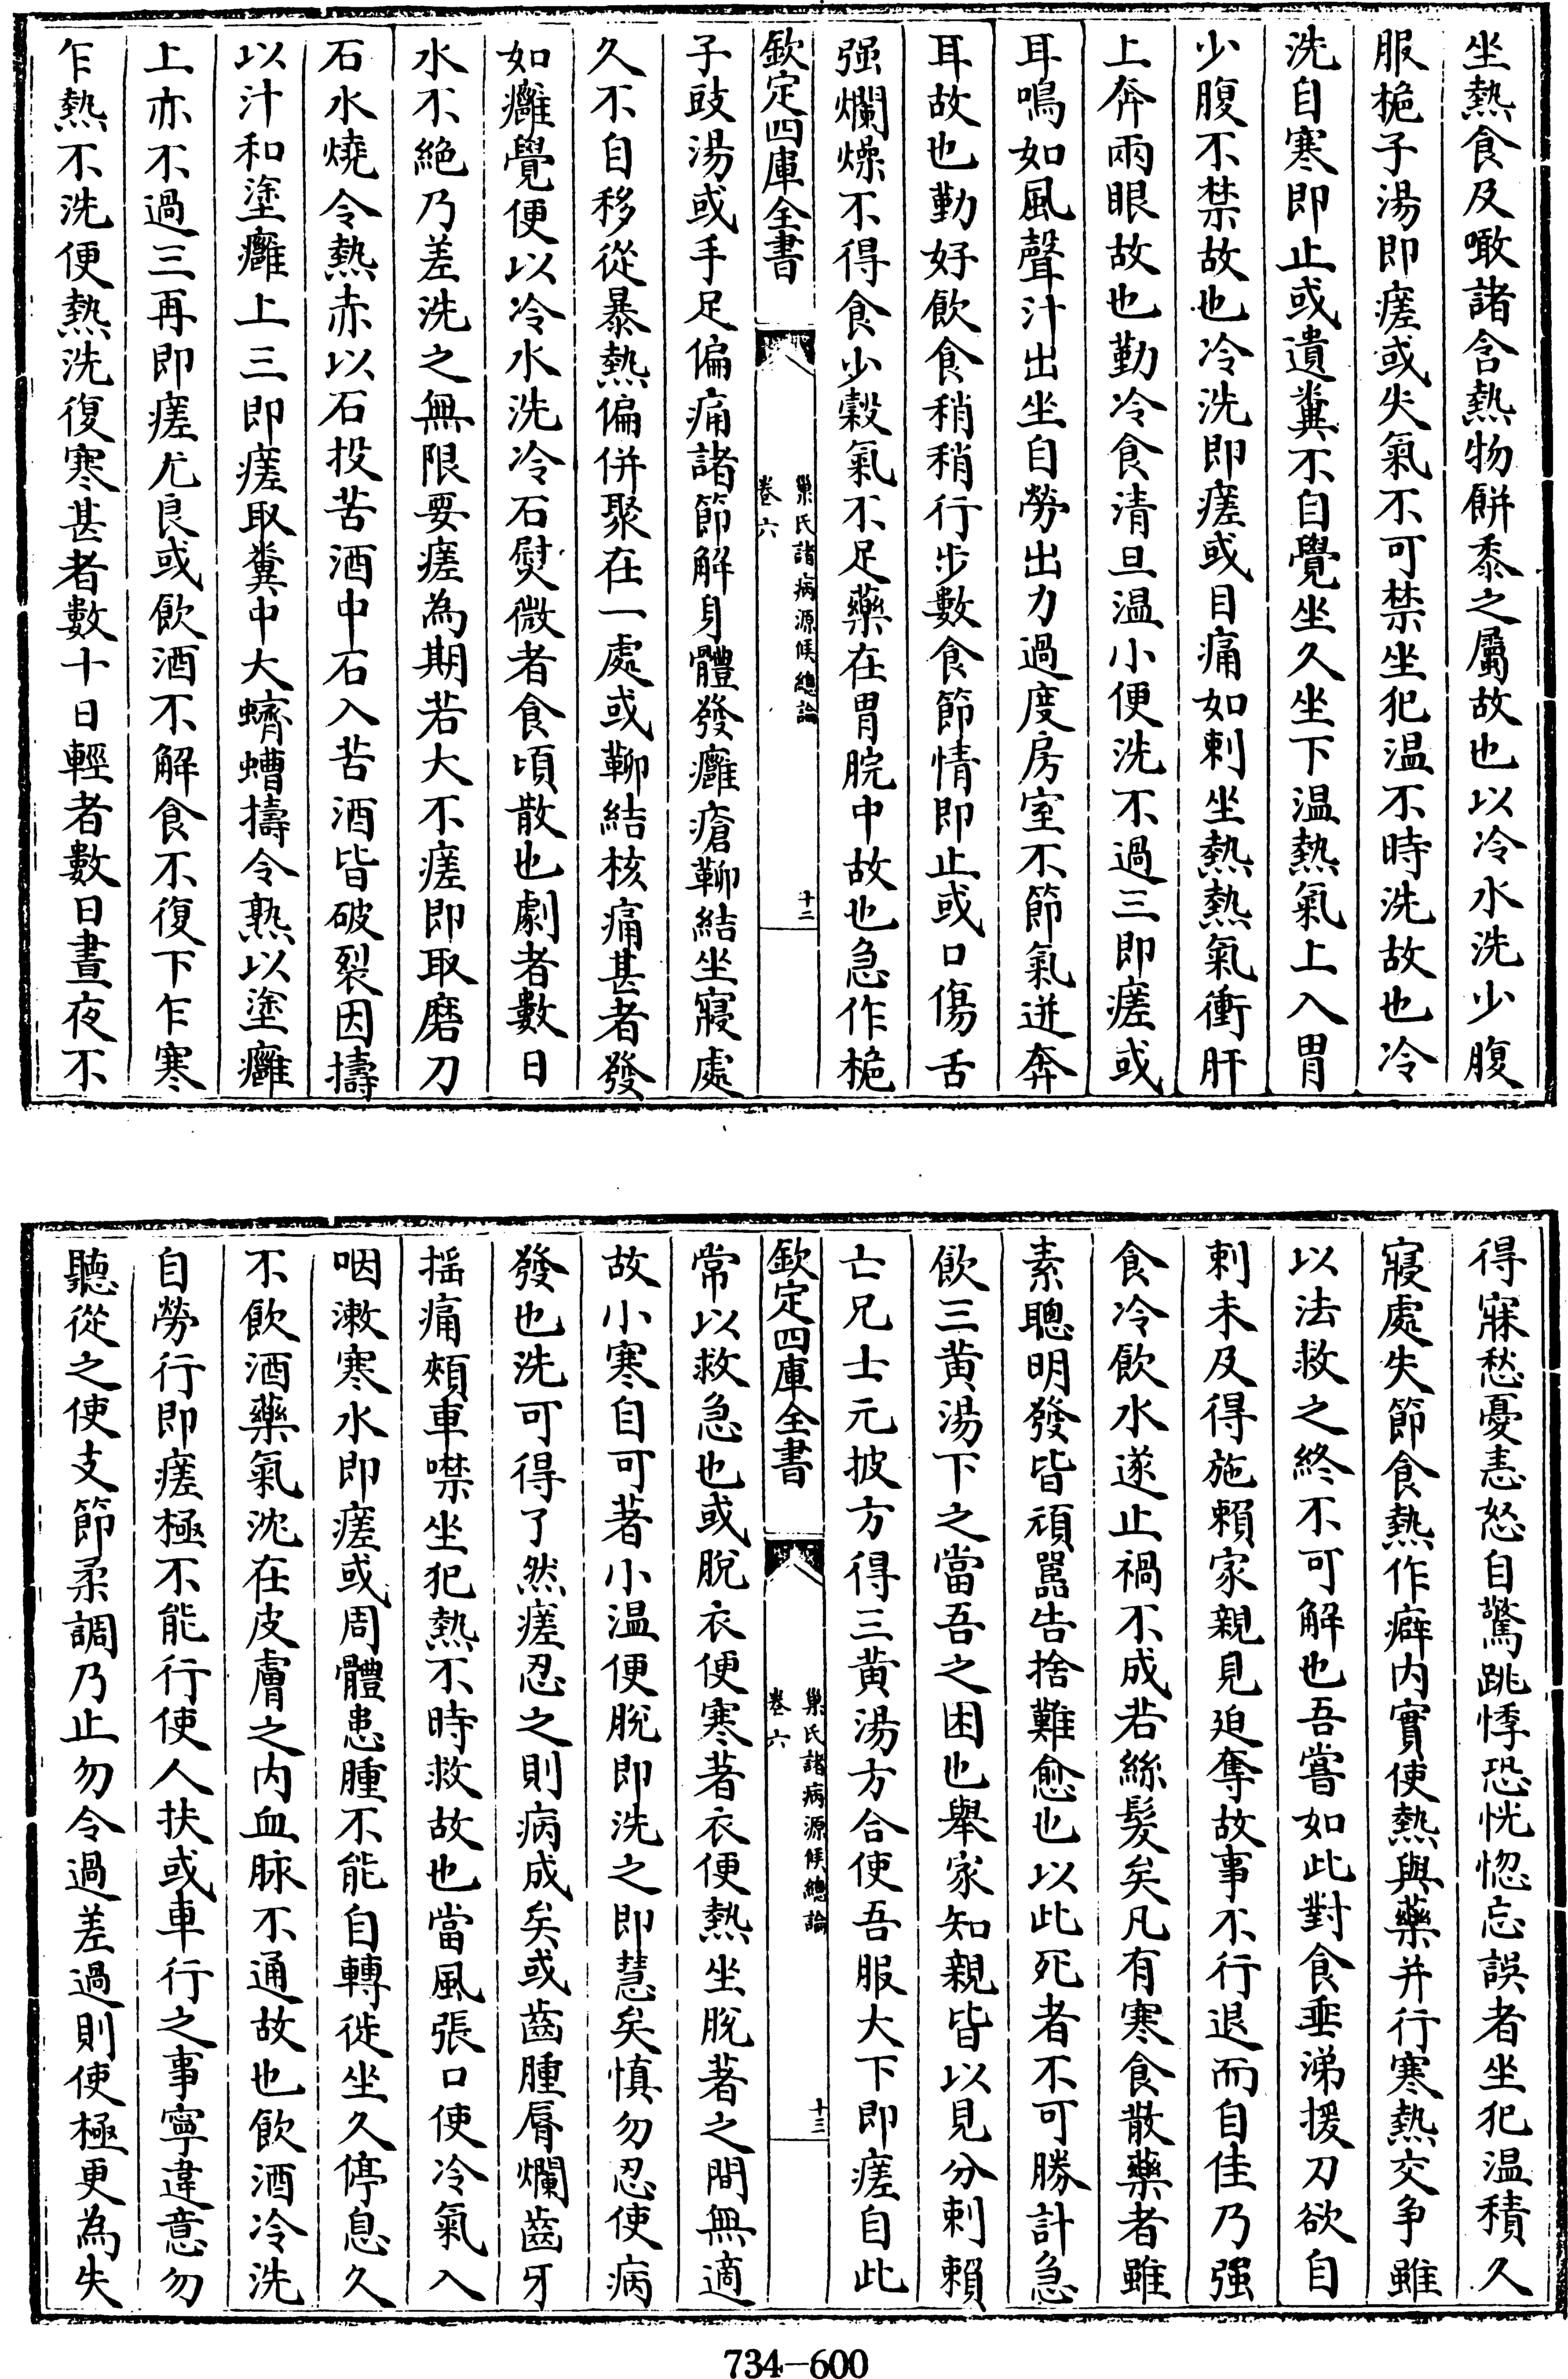 坐熱食及噉諸含熱物餅黍之屬故也以冷水洗少腹
服梔子湯即瘥或失氣不可禁坐犯温不時洗故也冷
洗自寒即止或遺糞不自覺坐久坐下温熱氣上入胃
少腹不禁故也冷洗即瘥或目痛如刺坐熱熱氣衝肝
上奔兩眼故也勤冷食清旦温小便洗不過三即瘥或
耳鳴如風聲汁出坐自勞出力過度房室不節氣迸奔
耳故也勤好飲食稍稍行步數食節情即止或口傷舌
强爛燥不得食少穀氣不足藥在胃脘中故也急作梔
欽定四庫全書
巢氏諸病源候總論
卷六
十二
子豉湯或手足偏痛諸節解身體發癰瘡䩺結坐寢處
久不自移從暴熱偏併聚在一處或䩺結核痛甚者發
如癰覺便以冷水洗冷石熨微者食頃散也劇者數日
水不絶乃差洗之無限要瘥為期若大不瘥即取磨刀
石水燒令熱赤以石投苦酒中石入苦酒皆破裂因擣
以汁和塗癰上三即瘥取糞中大蠐螬擣令熟以塗癰
上亦不過三再即瘥尤良或飲酒不解食不復下乍寒
乍熱不洗便熱洗復寒甚者數十日輕者數日晝夜不
得寐愁憂恚怒自驚跳悸恐恍惚忘誤者坐犯温積久
寢處失節食熱作癖内實使熱與藥并行寒熱交争雖
以法救之終不可解也吾嘗如此對食垂涕援刀欲自
刺未及得施賴家親見迫奪故事不行退而自佳乃强
食冷飲水遂止禍不成若絲髮矣凡有寒食散藥者雖
素聰明發皆頑嚚告捨難愈也以此死者不可勝計急
飲三黄湯下之當吾之困也舉家知親皆以見分剌賴
亡兄士元披方得三黄湯方合使吾服大下即瘥自此
欽定四庫全書
巢氏諸病源候總論
卷六
十三
常以救急也或脫衣便寒著衣便熱坐脫著之間無適
故小寒自可著小温便脫即洗之即慧矣慎勿忍使病
發也洗可得了然瘥忍之則病成矣或齒腫脣爛齒牙
揺痛頰車噤坐犯熱不時救故也當風張口使冷氣入
咽漱寒水即瘥或周體患腫不能自轉徙坐久停息久
不飲酒藥氣沈在皮膚之内血脉不通故也飲酒冷洗
自勞行即瘥極不能行使人扶或車行之事寧違意勿
聽從之使支節柔調乃止勿令過差過則使極更為失
734-600